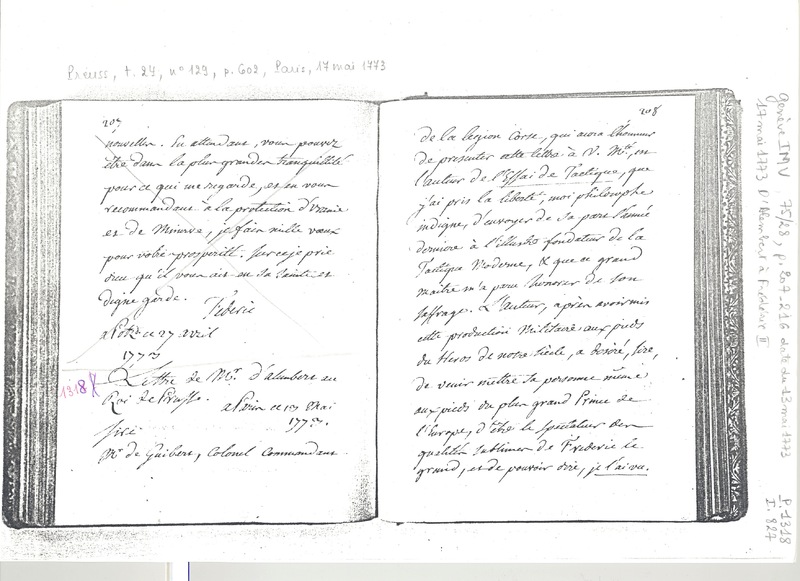 Preuss, t. 24, n° 129, p. 602, Paris, 17 mai 1773
207
nouvelles. En attendant, vous pouvez
être dans la plus grande tranquillité
pour ce qui me regarde, et en vous
recommandant à la protection d'Uranie
et de Minerve, je fais mille vœux
pour votre prosperité. Sur ce je prie
dieu qu'il vous ait en sa sainte et
digne garde.
Féderic
a Potz ce 27 avril
1773
1318
Lettre de Mr. d'alembert au
Roi de Prusse.
a Paris ce 13 Mai
1773.
Sire
Mr de Guibert, Colonel Commandant
208
de la legion Corse, qui aura l'honneur
de presenter cette lettre à V. Mté, est
l'auteur de l'Essai de Tactique, que
j'ai pris la liberté, moi philosophe
indigne, d'envoyer de sa part l'année
derniere à l'illustre fondateur de la
Tactique Moderne, & que ce grand
maitre m'a paru honorer de son
suffrage. L'auteur, après avoir mis
cette production Militaire aux pieds
du Heros de notre siècle, a desiré, Sire,
de venir mettre sa personne même
aux pieds du plus grand Prince de
l'Europe, d'être le spectateur des
qualités sublimes de Frederic le
grand, et de pouvoir dire, je l'ai vu.
Genève IMV, 75/28, p. 207-216 daté du 13 mai 1773
17 mai 1773 D'Alembert à Frédéric II
P. 1318
I. 827